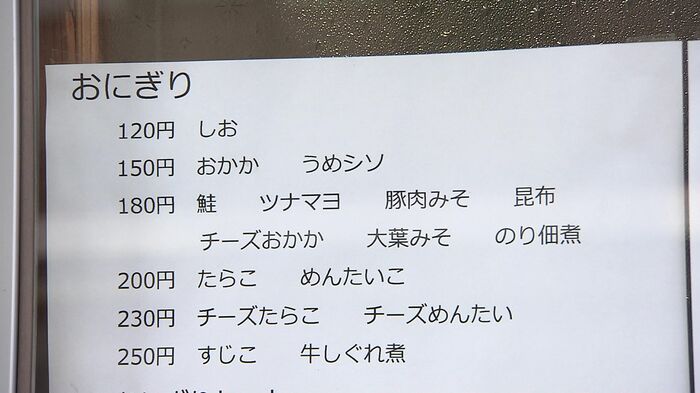 おにぎり
120円 しお
150円 おかか うめシソ
180円 鮭 ツナマヨ 豚肉みそ 昆布
チーズおかか 大葉みそ のり佃煮
200円 たらこ めんたいこ
230円 チーズたらこ チーズめんたい
250円 すじこ 牛しぐれ煮